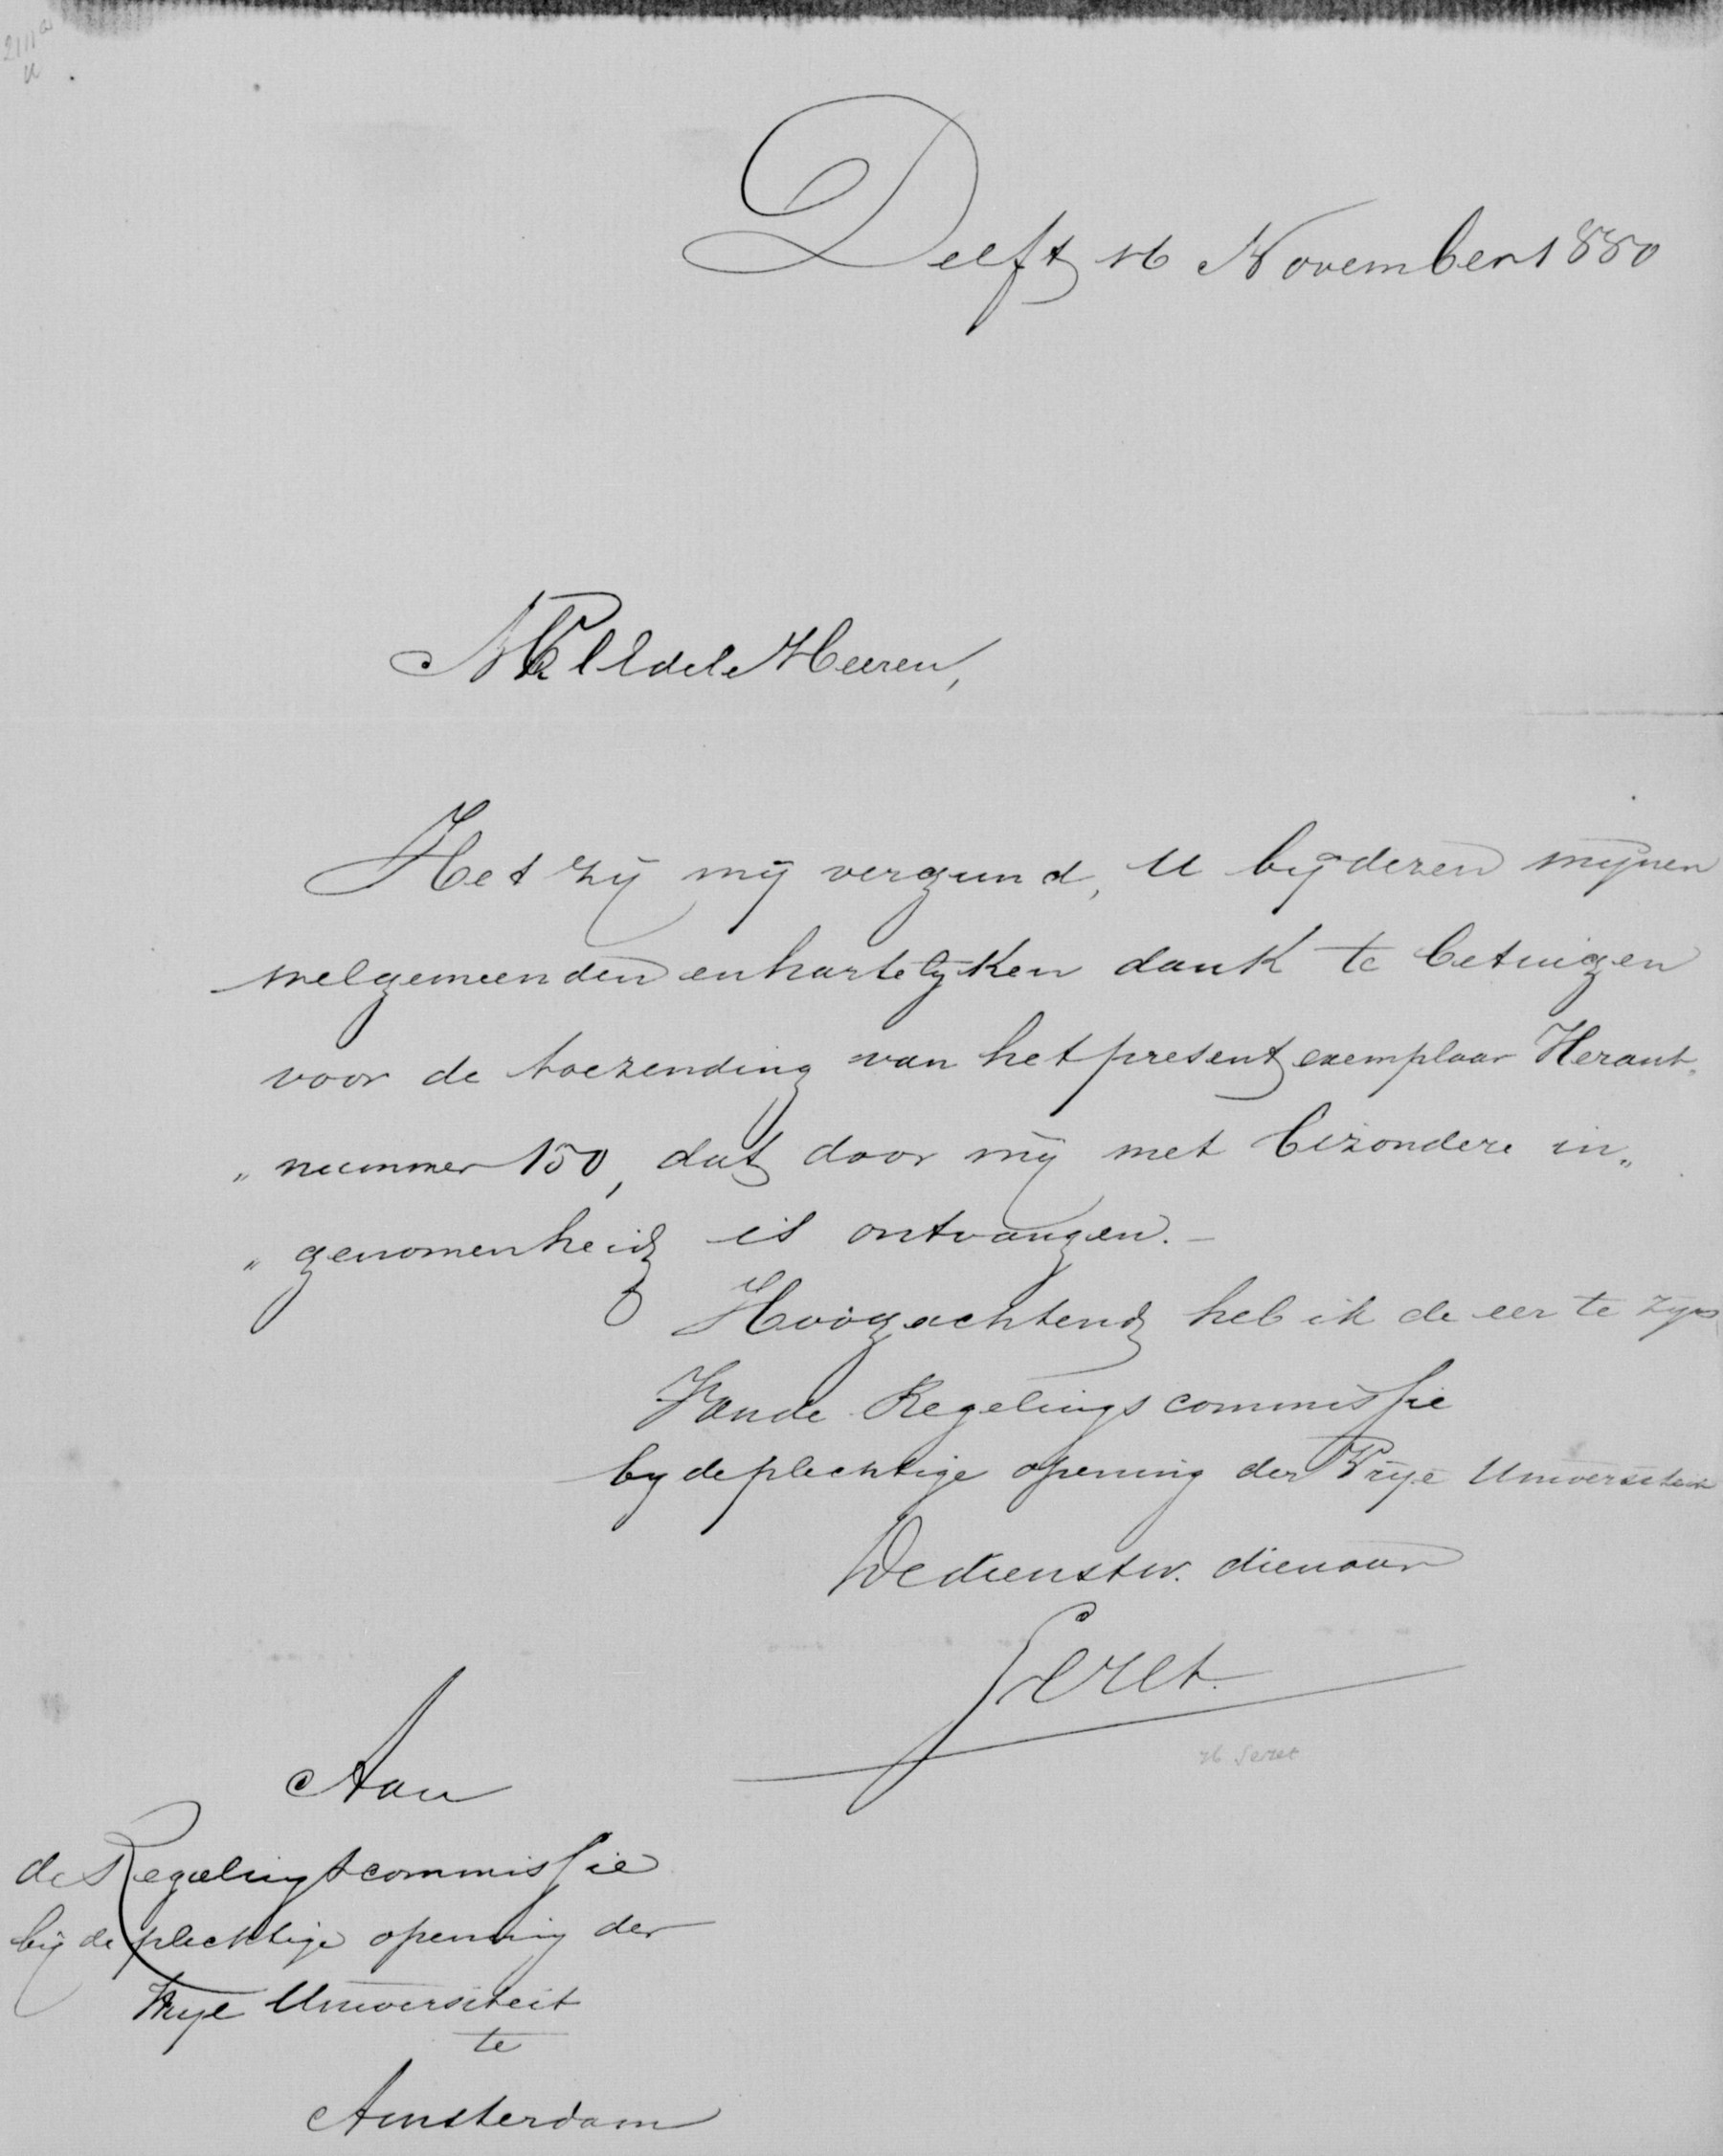 Delft 16 November 1880
WelEdele Heeren,
Het zij mij vergund, U bij dezen mijnen
welgemeenden en hartelijken dank te betuigen
voor de toezending van het present exemplaar Heraut„
„ nummer 150, dat door mij met bizondere in„
„ genomenheid is ontvangen. —
Hoogachtend heb ik de eer te zijn
Van de Regelingscommissie
bij de plechtige opening der Vrije Universiteit
De dienstw. dienaar
Seret.
Seret
Aan
de Regelingscommissie
bij de plechtige opening der
Vrije Universiteit
te
Amsterdam